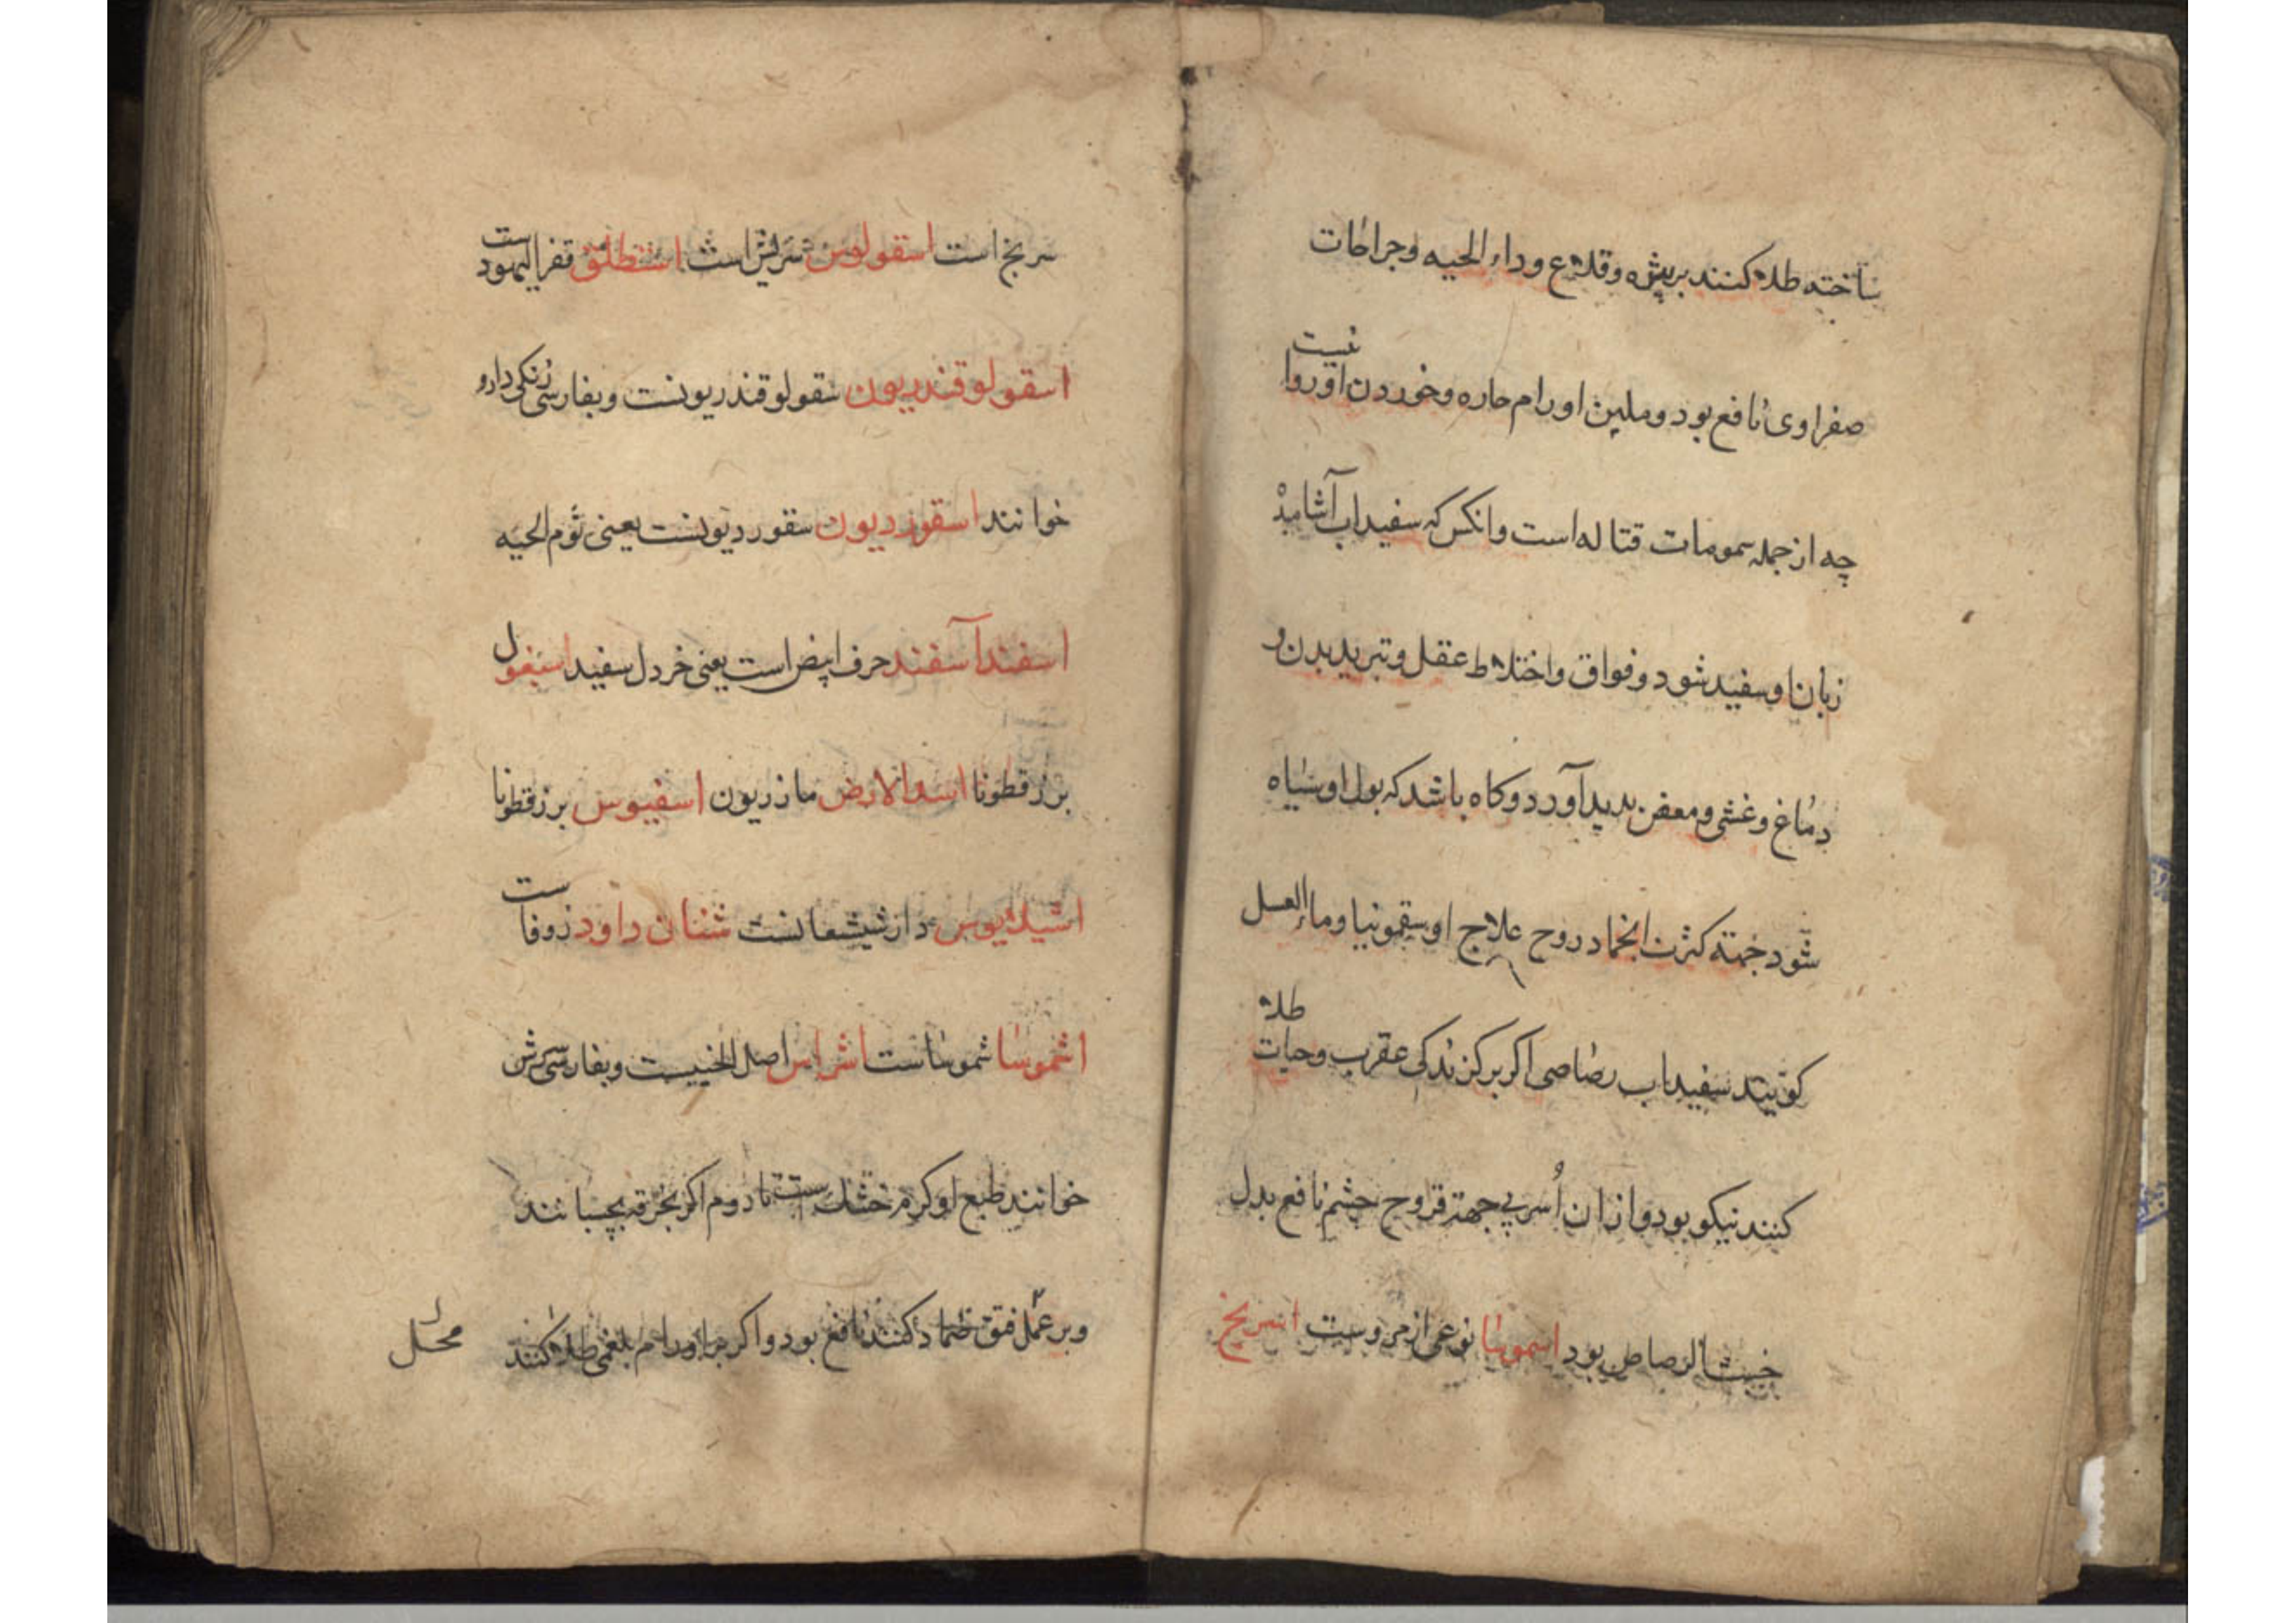 ساخته طلاء کنند بر بثره وقلاع وداء الحیه وجراحات
صفراوی نافع بود وملین اورام حاره وخوردن او روا نیست
چه از جمله سمومات قتاله است وانکس که سفیداب آشامید
زبان او سفید شود وفواق واختلاط عقل وتبرید بدن و
دماغ وغشی ومعض بدید آورد وکاه باشد که بول او سیاه
شود جهته کثرت انجماد روح علاج او سقمونیا وماء العسل
کویند سفیداب رصاصی اکر بر کزندکی عقرب وحیات طلاء
کنند نیکو بود وازان اُسرپ جهة قروح چشم نافع بدل
خبث الرصاص بود اسموسا نوعی از مروست اسریخ
سریخ است اسقولوس سریش است استطلق قفر الیهودست
اسقولوقندریون سقولوقندریونست وبفارسی زنکی دارو
خوانند اسقوردیون سقوردیونست یعنی ثوم الحیه
اسفندآسفند حرف ابیض است یعنی خردل سفید اسبغول
بزرقطونا اسدالارض مازریون اسفیوس بزرقطونا
اشیلاثیوس دارشیشعانست شنان داود زوفاست
اشموسا شموساست اشراس اصل الخنثیست وبفارسی سرش
خوانند طبع او کرم خشک ست تا دوم اکر بخرقه بچسبانند
وبر عمل فتق ضماد کنند نافع بود واکر بر اورام بلغمی طلاء کنند
محلل